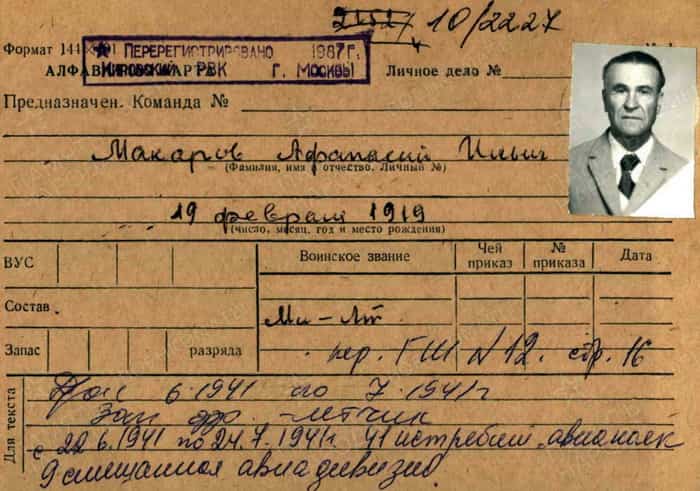 21527 10/2227
Формат 144×101
★ ПЕРЕРЕГИСТРИРОВАНО 1987г.
КИРОВСКИЙ РВК Г. МОСКВЫ
АЛФАВИТНАЯ КАРТА Личное дело №
Предназначен. Команда №
Макаров Афанасий Ильич
(Фамилия, имя отчество. Личный №)
19 февраля 1919
(число, месяц, год и место рождения)
ВУС Воинское звание Чей приказ № приказа Дата
Состав
Мл-Лт
Запас разряда
пер. ГШ N12. стр. 16
Для текста
6.1941 по 7.1941г
летчик
с 22.6.1941 по 24.7.1941г. 41 истребит. авиаполк
9 смешанная авиадивизия